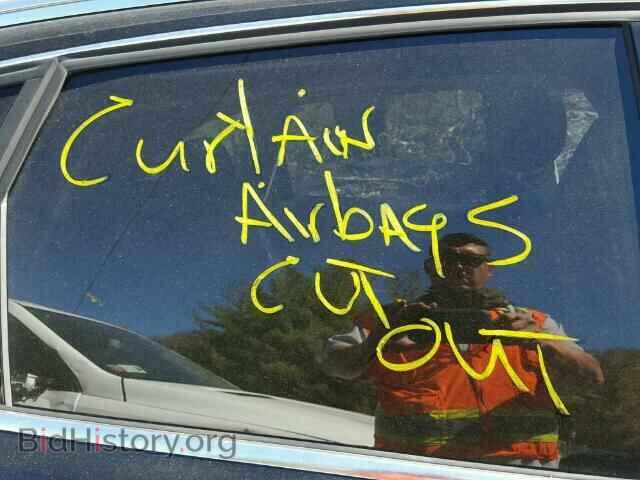 Curtain
Airbags
CUT
OUT
BidHistory.org